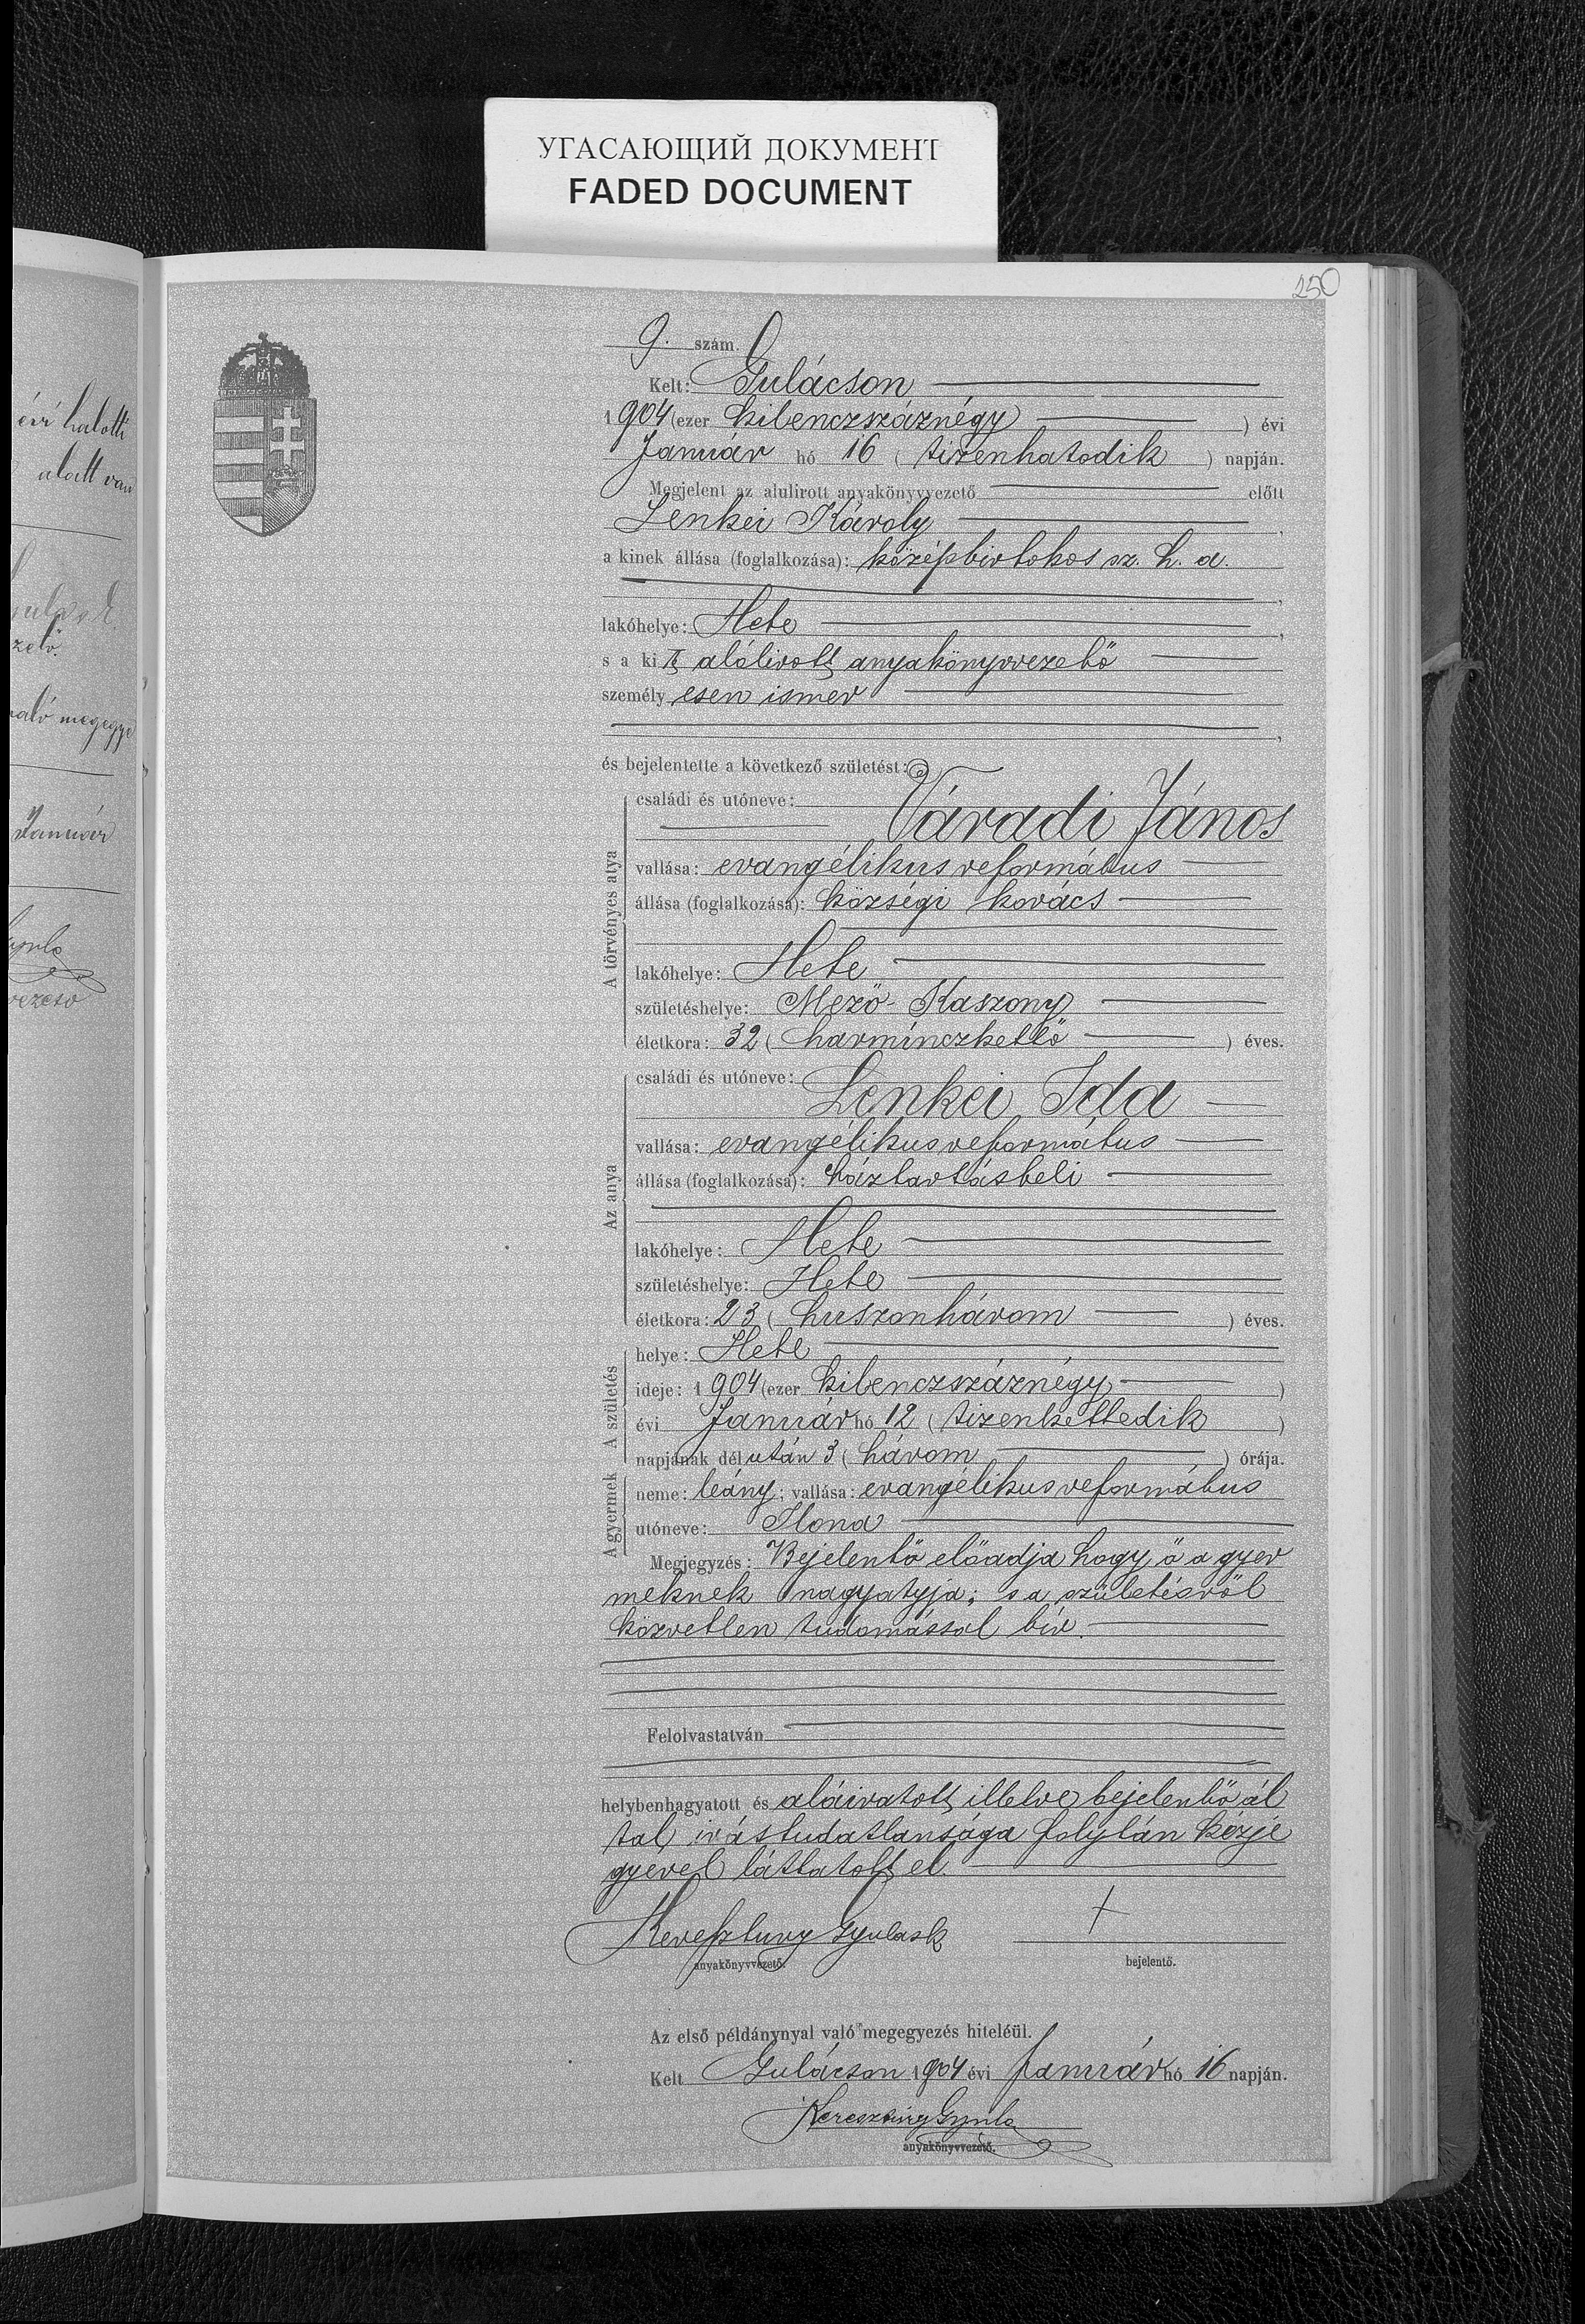 УГАСАЮЩИЙ ДОКУМЕНТ
FADED DOCUMENT
250
évi halotti
alatt van
megegye
Január
9. szám.
Kelt: Gulácson
1904 (ezer kilenczszáznégy ) évi
Január hó 16 ( tizenhatodik ) napján.
Megjelent az alulirott anyakönyvvezető előtt
Lenkei Károly ,
a kinek állása (foglalkozása): középbirtokos sz. h. a.
,
lakóhelye: Hete ,
s a kit alólirott anyakönyvvezető
személyesen ismer
,
és bejelentette a következő születést:
A törvényes atya
családi és utóneve:
Váradi János
vallása: evangélikus református
állása (foglalkozása): községi kovács
lakóhelye: Hete
születéshelye: Mező-Kaszony
életkora: 32 ( harminczkettő ) éves.
Az anya
családi és utóneve:
Lenkei Ida
vallása: evangélikus református
állása (foglalkozása): háztartásbeli
lakóhelye: Hete
születéshelye: Hete
életkora: 23 ( huszonhárom ) éves.
A születés
helye: Hete
ideje: 1904 (ezer kilenczszáznégy )
évi Január hó 12 ( tizenkettedik )
napjának délután 3 ( három ) órája.
A gyermek
neme: leány; vallása: evangélikus református
utóneve: Ilona
Megjegyzés: Bejelentő előadja hogy ő a gyer
meknek nagyatyja; s a születésről
közvetlen tudomással bir.
Felolvastatván
helybenhagyatott és aláiratott, illetve bejelentő ál
tal irástudatlansága folytán kézje
gyével láttatott el.
Keresztury Gyula sk +
anyakönyvvezető. bejelentő.
Az első példánynyal való megegyezés hiteléül.
Kelt Gulácson 1904 évi Január hó 16 napján.
Keresztury Gyula
anyakönyvvezető.